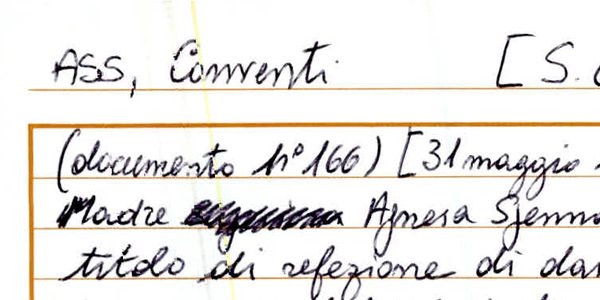 ASS, Conventi [S.
(documento n° 166) [31 maggio
Madre Agnesa
titolo di refezione di